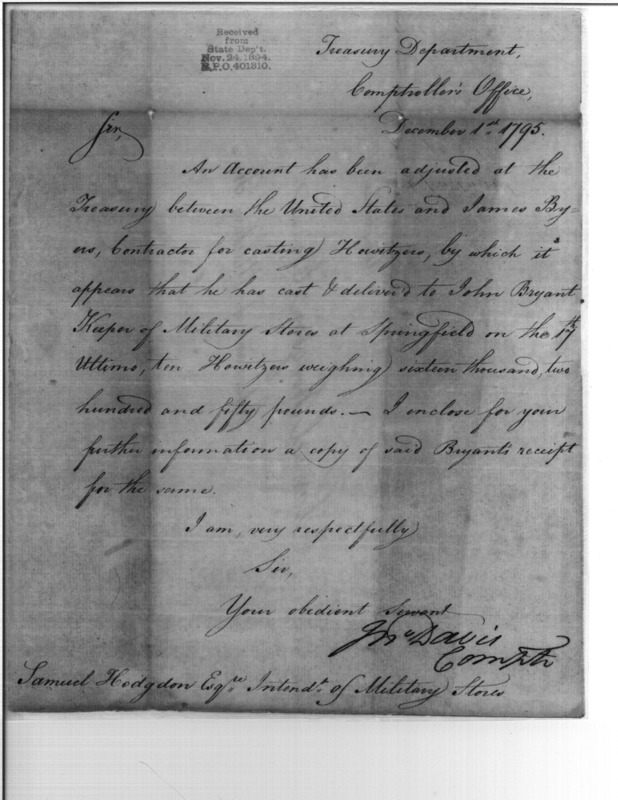 Received
from
State Dep't.
Nov. 24, 1894.
R.P.O. 401310.
Treasury Department,
Comptroller's Office,
December 1st. 1795.
Sir,
An Account has been adjusted at the
Treasury between the United States and James By-
ers, Contractor for casting Howitzers, by which it
appears that he has cast & deliver'd to John Bryant
Keeper of Military Stores at Springfield on the 17th
Ultimo, ten Howitzers weighing sixteen thousand, two
hundred and fifty pounds. — I enclose for your
further information a copy of said Bryant's receipt
for the same.
I am, very respectfully
Sir,
Your obedient Servant
Jno Davis
Comptr
Samuel Hodgdon Esqre. Intendt. of Military Stores